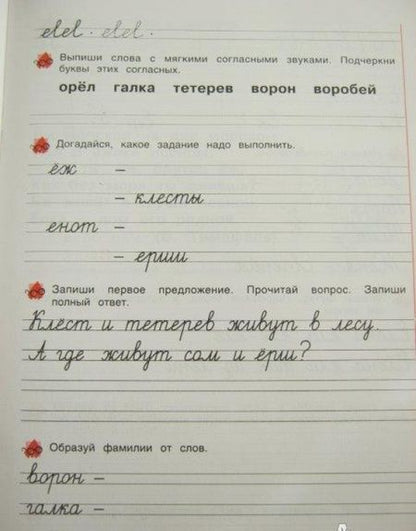 elel. elel.
Выпиши слова с мягкими согласными звуками. Подчеркни
буквы этих согласных.
орёл галка тетерев ворон воробей
Догадайся, какое задание надо выполнить.
ёж –
– клесты
енот –
– ерши
Запиши первое предложение. Прочитай вопрос. Запиши
полный ответ.
Клёст и тетерев живут в лесу.
А где живут сом и ёрш?
Образуй фамилии от слов.
ворон –
галка –